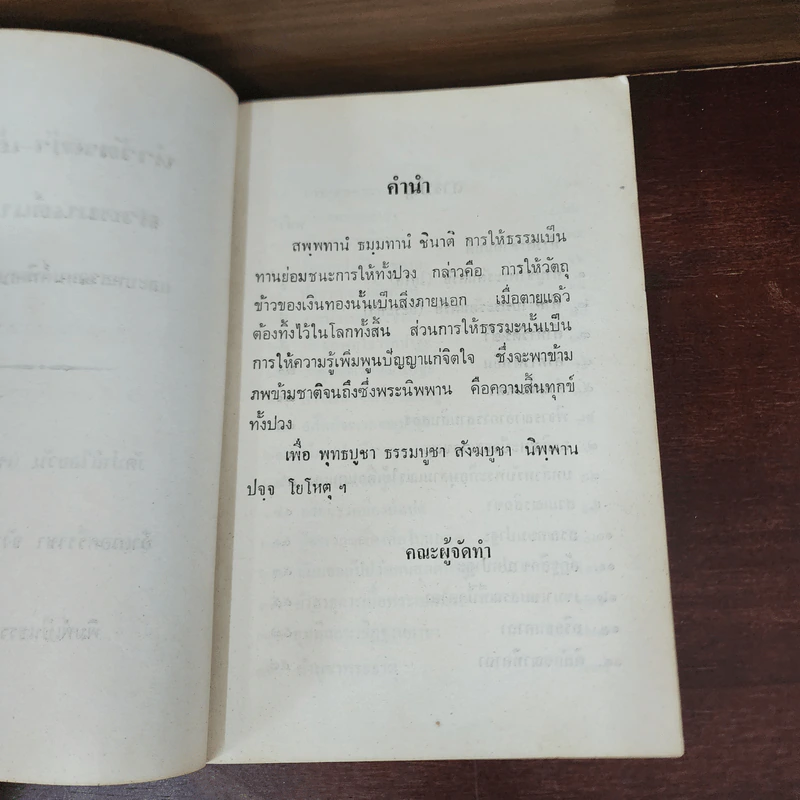 คำนำ
สพฺพทานํ ธมฺมทานํ ชินาติ การให้ธรรมเป็น
ทานย่อมชนะการให้ทั้งปวง กล่าวคือ การให้วัตถุ
ข้าวของเงินทองนั้นเป็นสิ่งภายนอก เมื่อตายแล้ว
ต้องทิ้งไว้ในโลกทั้งสิ้น ส่วนการให้ธรรมะนั้นเป็น
การให้ความรู้เพิ่มพูนปัญญาแก่จิตใจ ซึ่งจะพาข้าม
ภพข้ามชาติจนถึงซึ่งพระนิพพาน คือความสิ้นทุกข์
ทั้งปวง
เพื่อ พุทธบูชา ธรรมบูชา สังฆบูชา นิพฺพาน
ปจฺจ โยโหตุ ฯ
คณะผู้จัดทำ